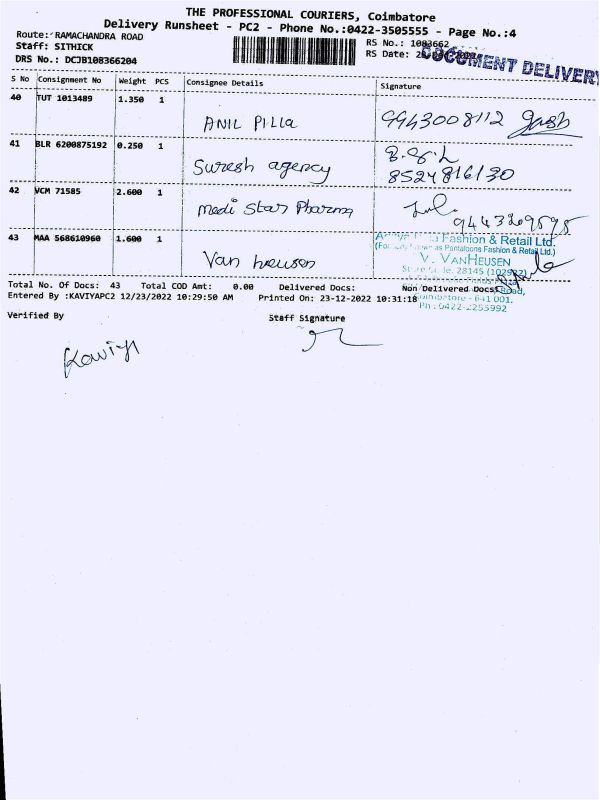 THE PROFESSIONAL COURIERS, Coimbatore
Delivery Runsheet - PC2 - Phone No.:0422-3505555 - Page No.:4
Route: RAMACHANDRA ROAD
Staff: SITHICK
DRS No.: DCJB108366204
RS No.: 1083662
RS Date:
DOCUMENT DELIVERY
S No Consignment No Weight PCS Consignee Details Signature
40 TUT 1013489 1.350 1 ANIL PILLa 9943008112
41 BLR 6200875192 0.250 1 Suresh agency 8524816130
42 VCM 71585 2.600 1 medi Star Pharma 9443209595
43 MAA 568610960 1.600 1 Van heuson
Fashion & Retail Ltd.
as Pantaloons Fashion & Retail Ltd.)
V. VANHEUSEN
28145
Total No. Of Docs: 43 Total COD Amt: 0.00 Delivered Docs: Non Delivered Docs: Road,
Entered By :KAVIYAPC2 12/23/2022 10:29:50 AM Printed On: 23-12-2022 10:31:18 - 641 001.
Ph : 0422-2255992
Verified By Staff Signature
Kaviya